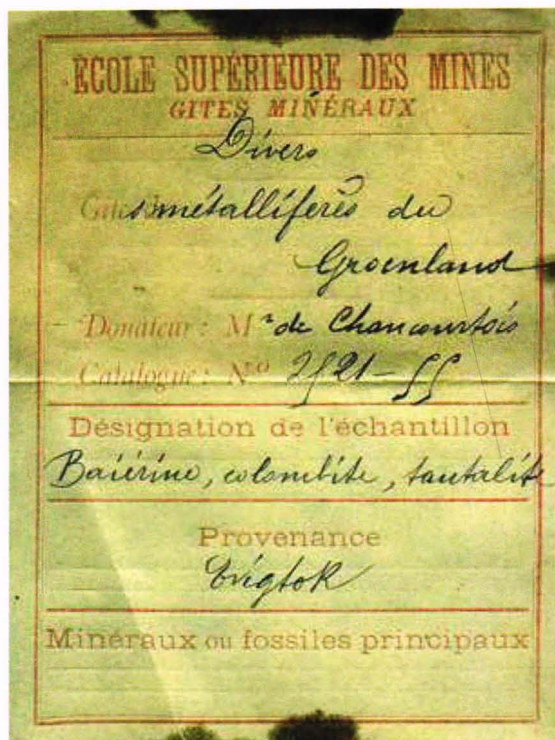 ÉCOLE SUPÉRIEURE DES MINES
GITES MINÉRAUX
Divers
Gites métallifères du
Groenland
Donateur : Mr de Chancourtois
Catalogue : No 2521-55
Désignation de l'échantillon
Baiérine, colombite, tantalite
Provenance
Evigtok
Minéraux ou fossiles principaux